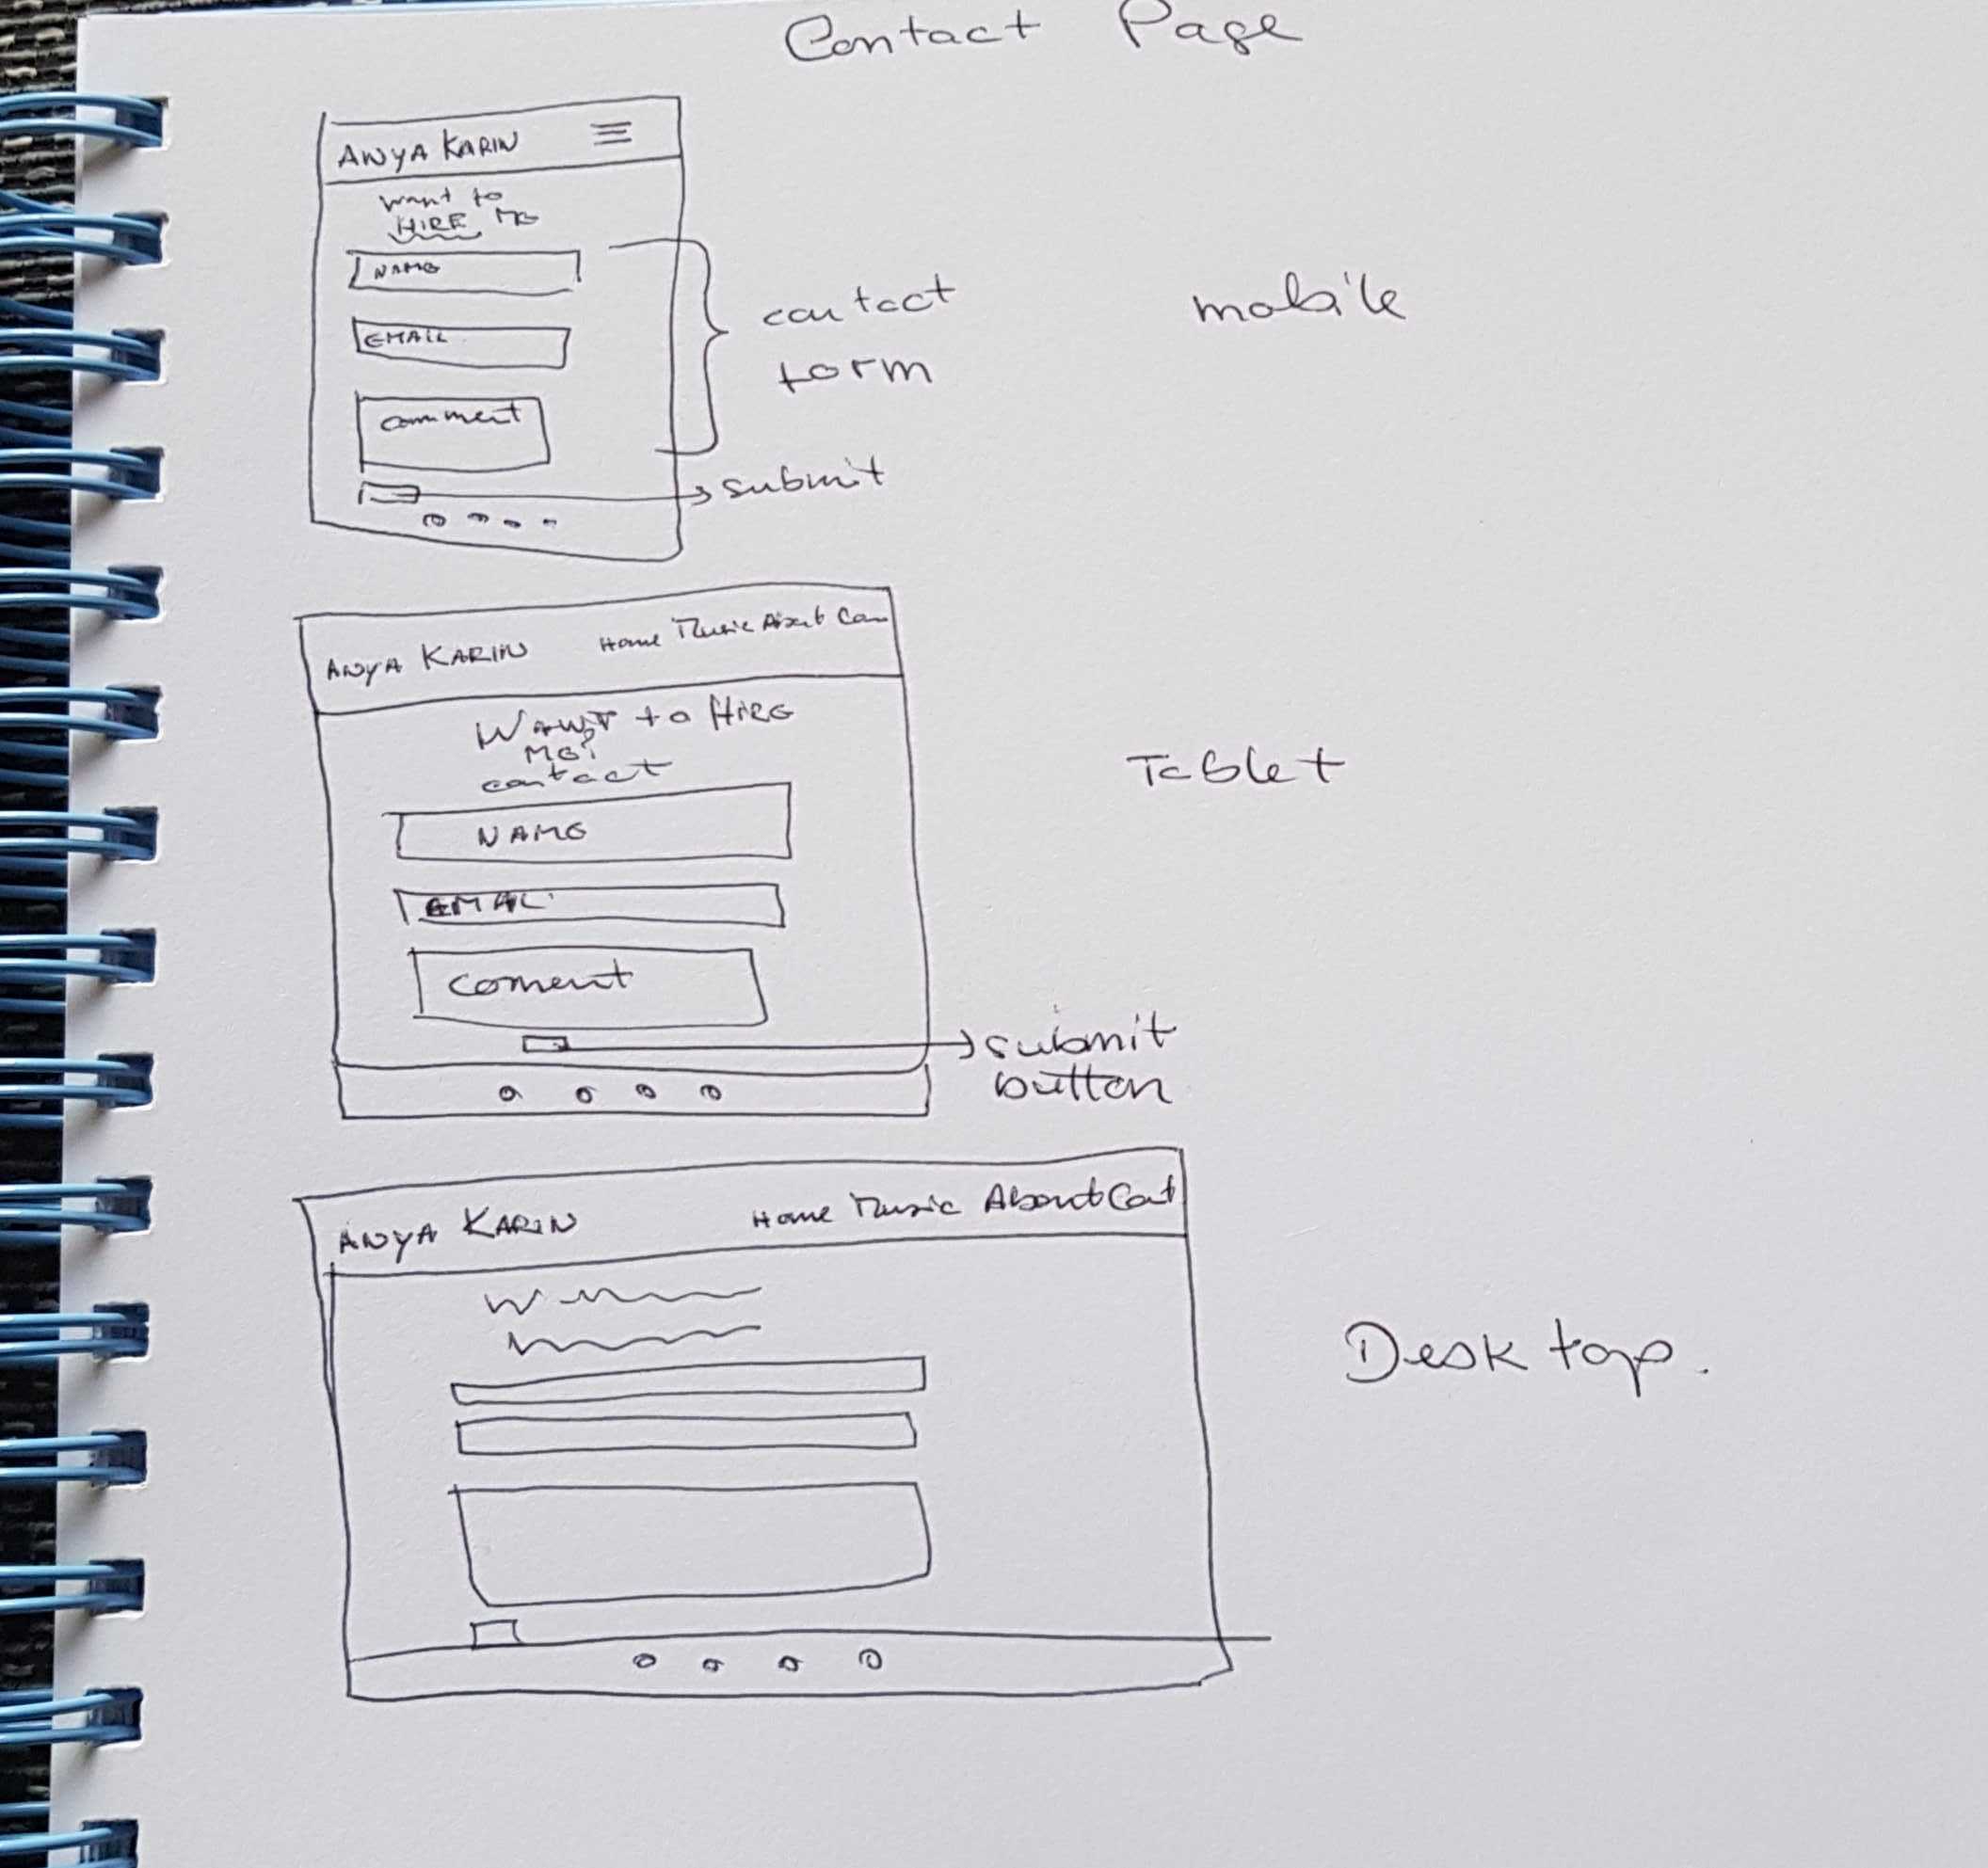 Contact Page
ANYA KARIN
want to
HIRE ME
NAME
EMAIL
comment
contact
form
submit
mobile
ANYA KARIN Home Music About Con
WANT to HIRE
ME?
contact
NAME
EMAIL
coment
submit
button
Tablet
ANYA KARIN Home Music About Cont
Desktop.